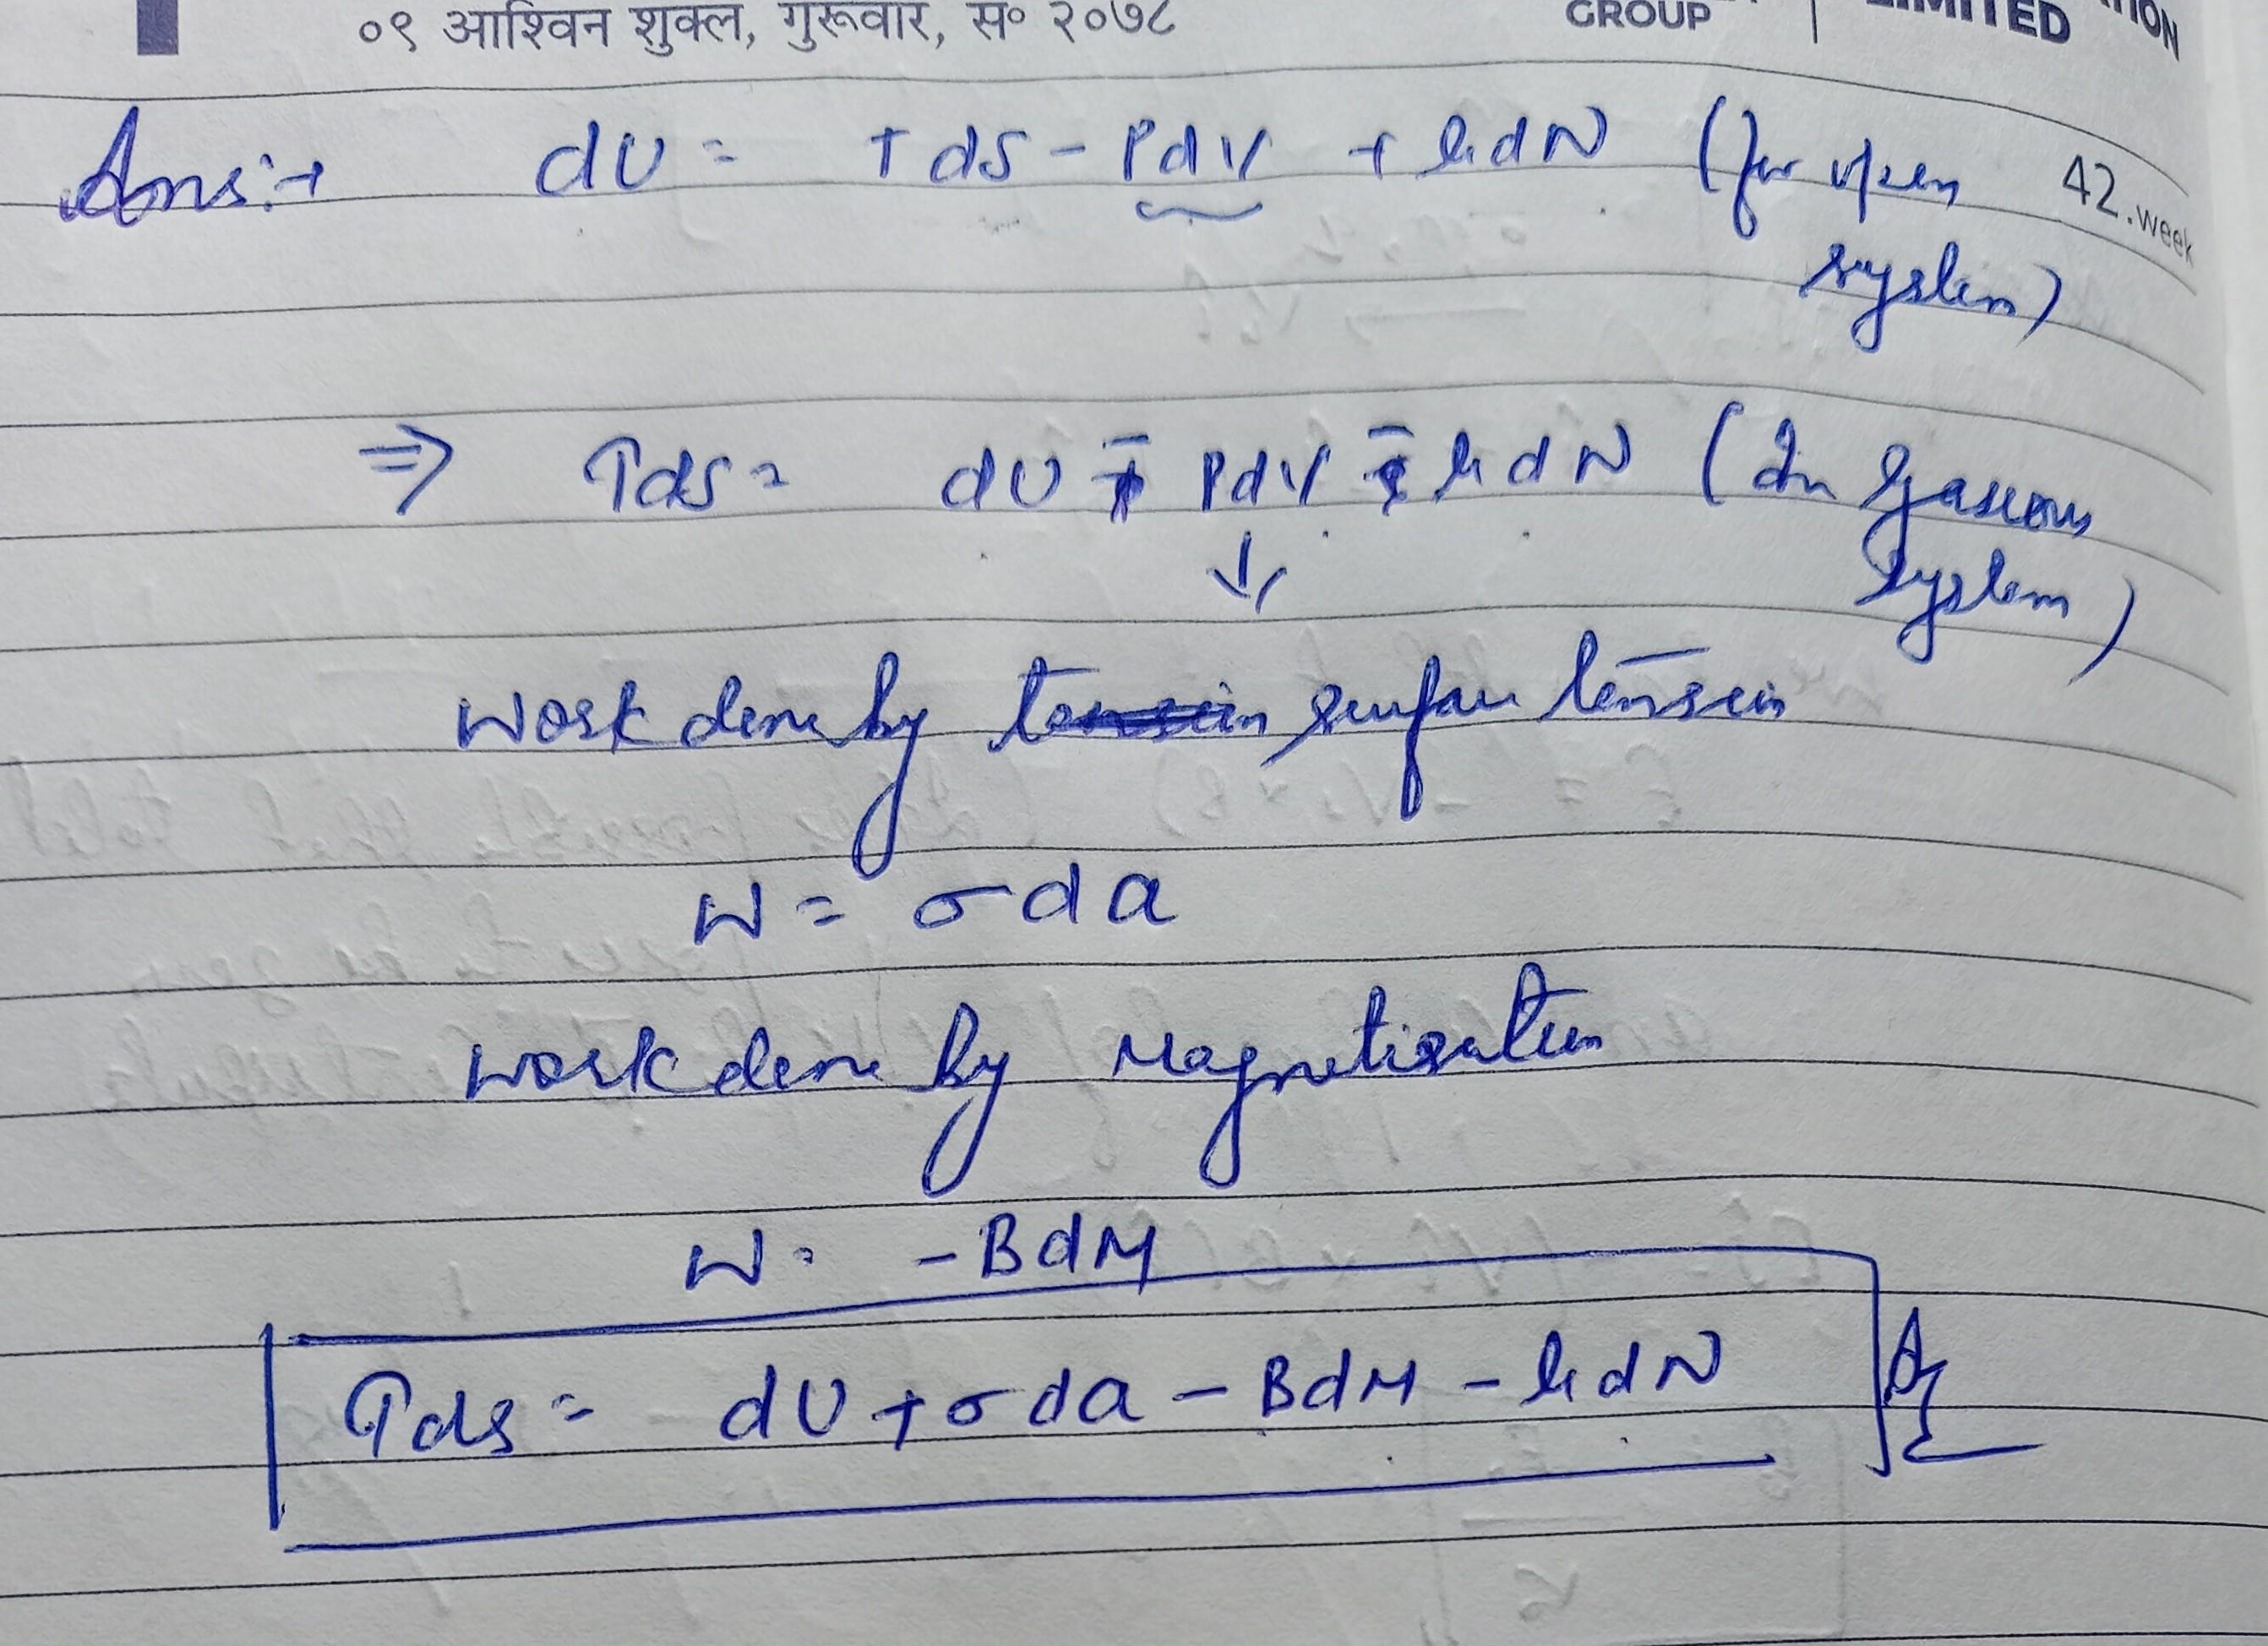 ०९ आश्विन शुक्ल, गुरूवार, स० २०७८
GROUP
LIMITED
42.week
Ans:→ dU = TdS - PdV + μdN (for open
system)
⇒ TdS = dU + PdV - μdN (In Gaseous
system)
↓
work done by surface tension
W = σda
work done by Magnetisation
W = -BdM
TdS = dU + σda - BdM - μdN